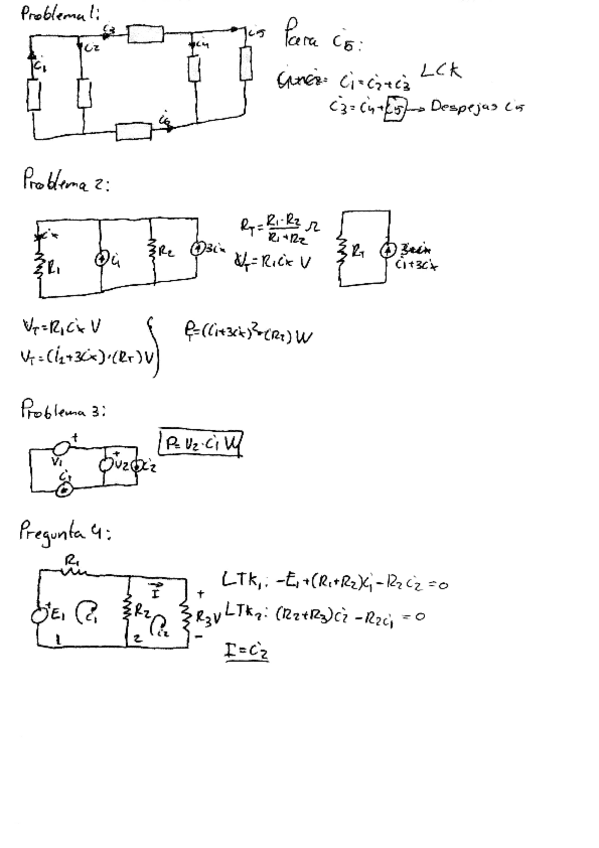 Problema 1:
i1
i2
i3
i4
i5
i6
Para i5:
i1=i2+i3 LCK
i3=i4+i5 → Despejas i5
Problema 2:
ix
R1
i1
R2
3ix
RT=R1·R2/R1+R2 Ω
VT=R1ix V
RT
i1+3ix
VT=R1ix V
VT=(i2+3ix)·(RT)V
PT=(i1+3ix)²·(RT)W
Problema 3:
V1
+
i1
+
V2
i2
P=V2·i1 W
Pregunta 4:
R1
+
E1
i1
1
R2
I
i2
2
+
R3 V
-
LTK1: -E1+(R1+R2)i1-R2i2=0
LTK2: (R2+R3)i2-R2i1=0
I=i2